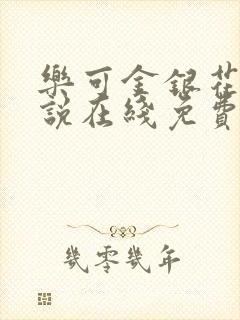 樂可金銀花
說在綫免費
幾零幾年